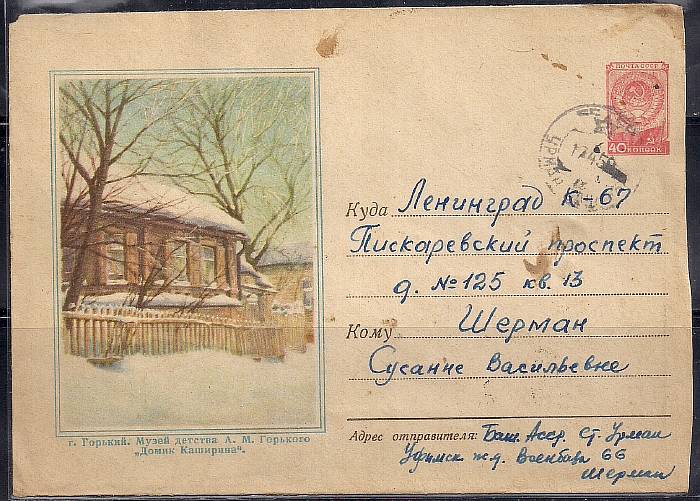 ПОЧТА СССР
40 КОПЕЕК
Куда Ленинград К-67
Пискаревский проспект
д. № 125 кв. 13
Кому Шерман
Сусанне Васильевне
г. Горький. Музей детства А. М. Горького
„Домик Каширина“.
Адрес отправителя: Баш. Асср. ст. Урман
Уфимск ж.д. Военбаза 66
Шерман